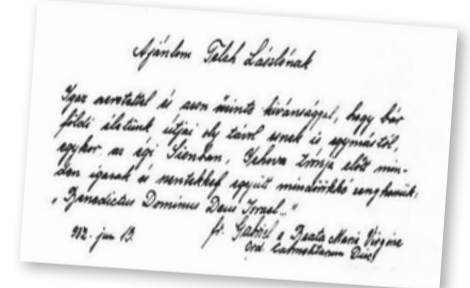 Ajánlom Teleh Lászlónak
Igaz szeretettel és azon őszinte kívánsággal, hogy bár
földi életünk útjai oly távol esnek is egymástól,
egykor az égi Sionban, Jehova trónja előtt min-
den igazak és szentekkel együtt mindörökké zenghessük:
„Benedictus Dominus Deus Israel..."
jun 13.
fr. Gábriel a Beata Maria Virgine
Ord. Carmelitarum Disc.